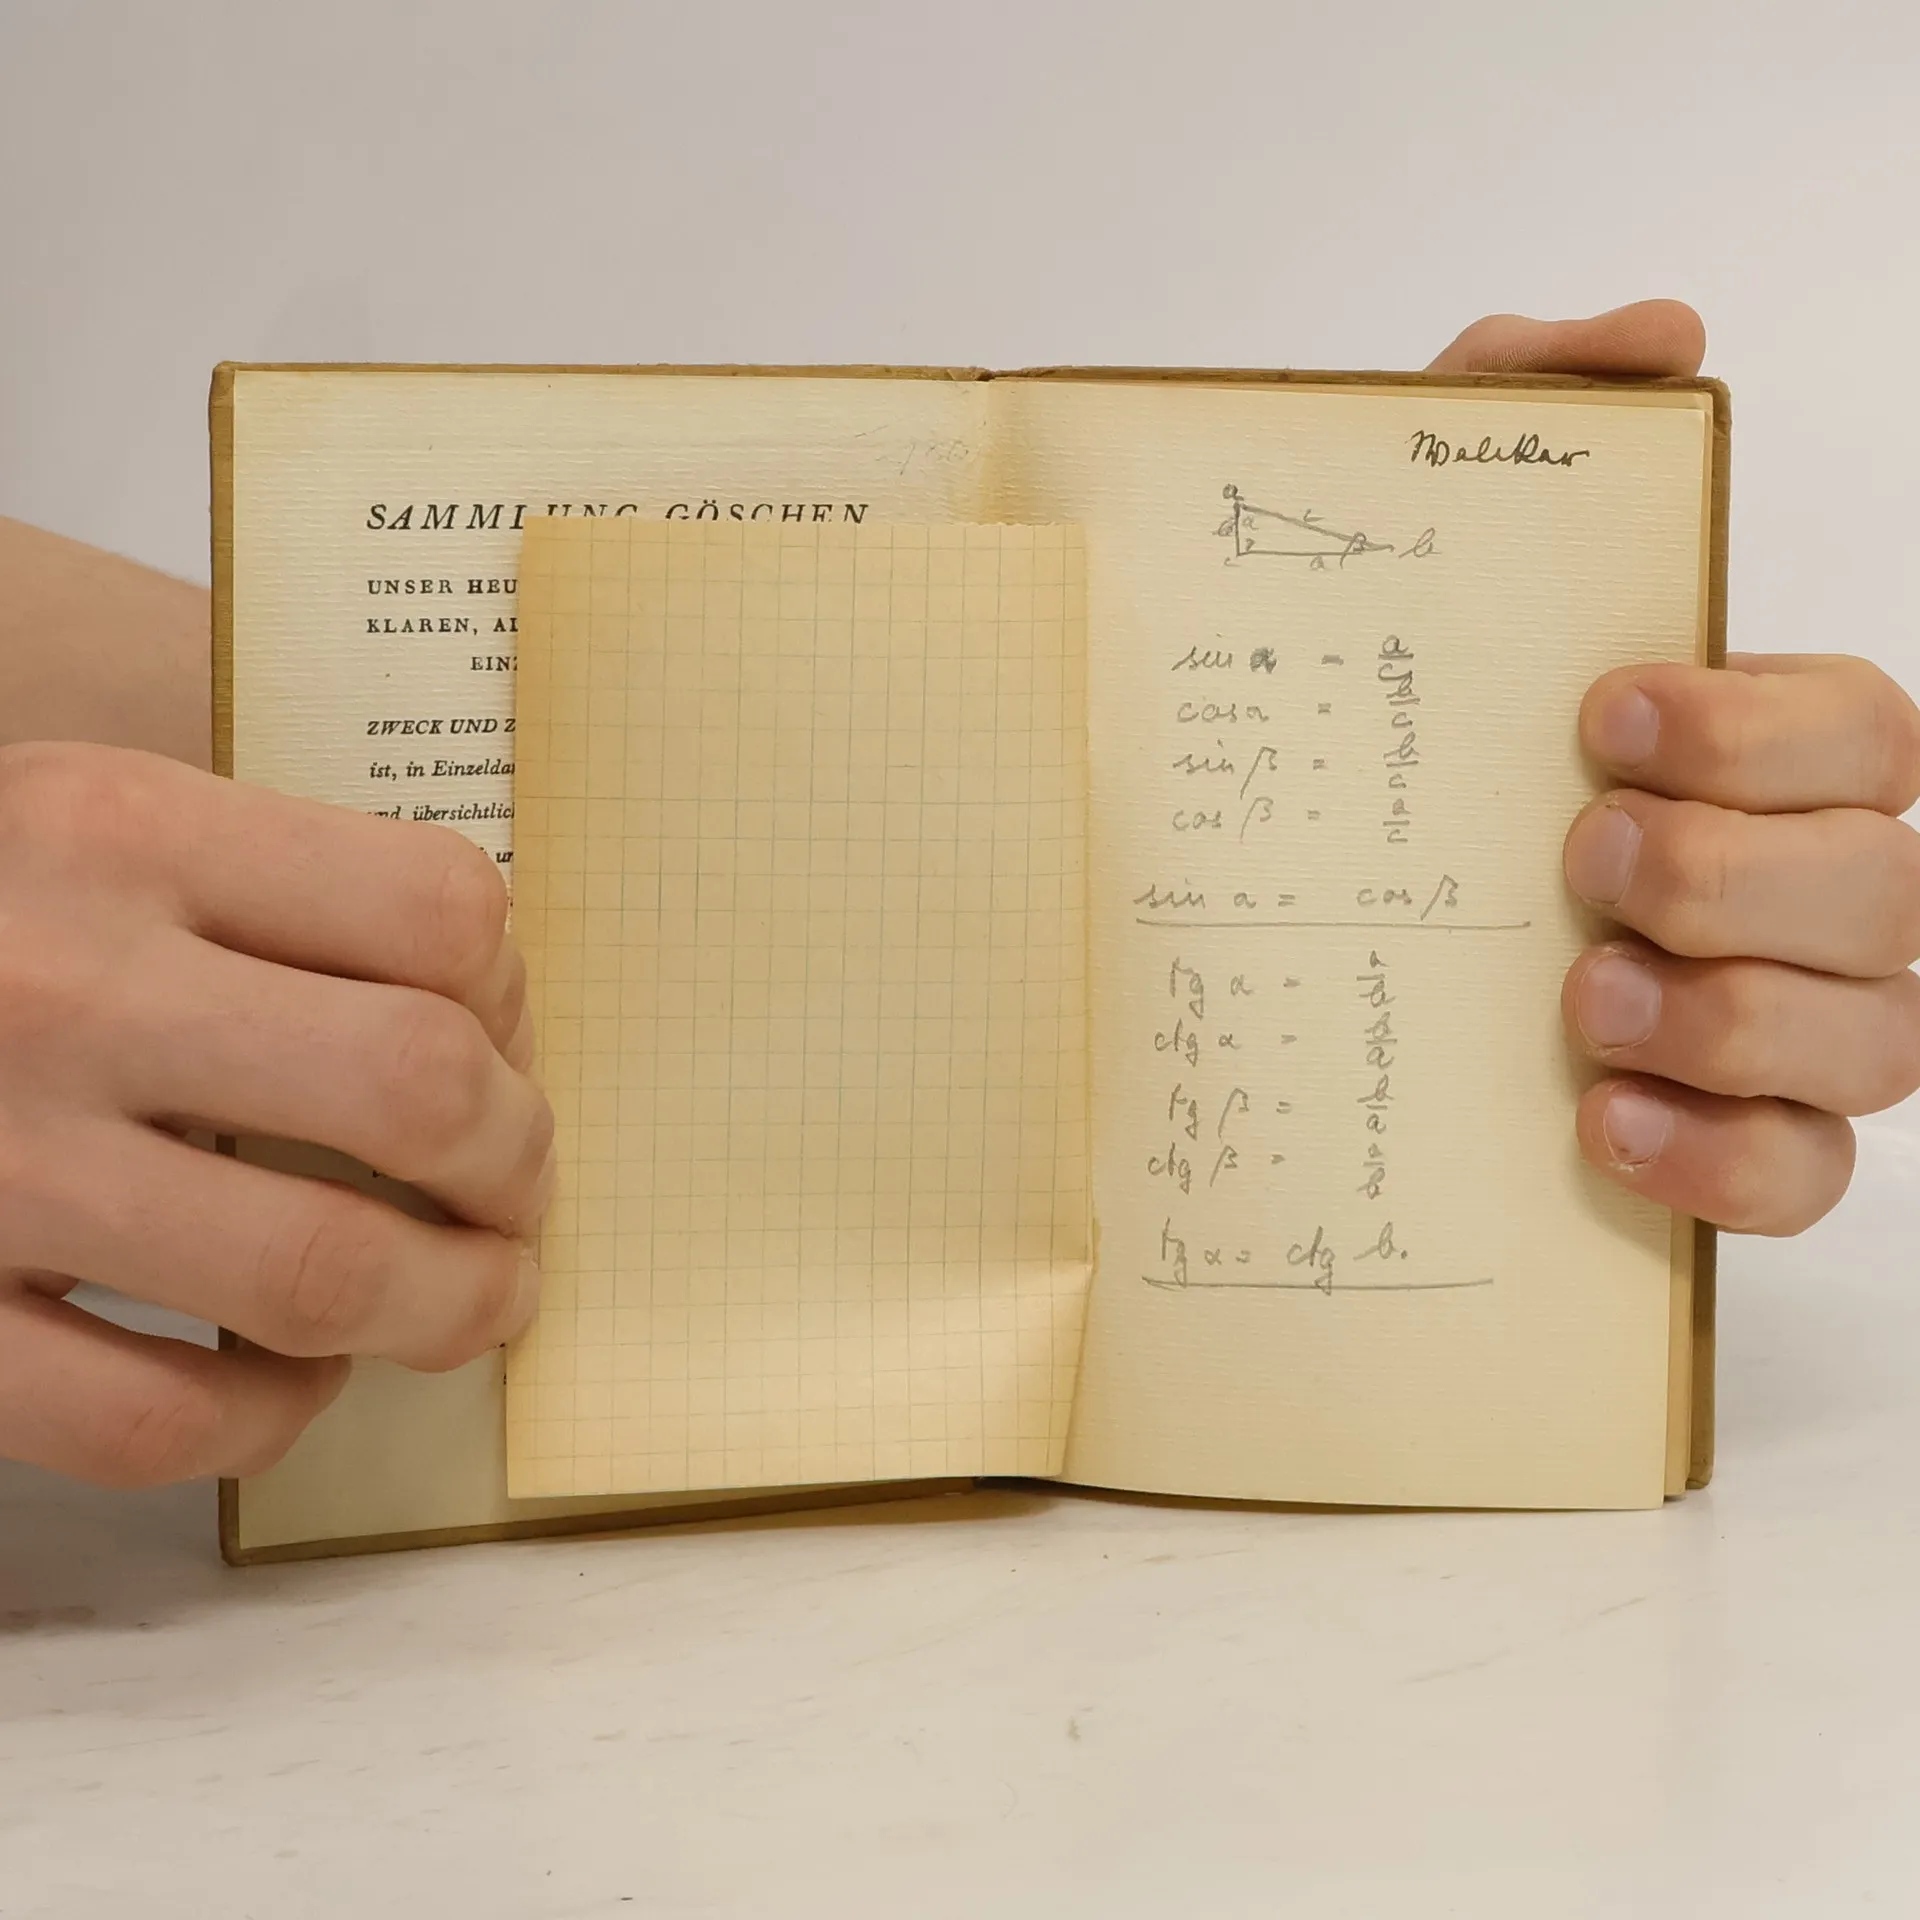 SAMMLUNG GÖSCHEN
UNSER HEU
KLAREN, AL
EINZ
ZWECK UND Z
ist, in Einzeldar
und übersichtlich
ur
a
α c
b
β
a
b
c
sin α = a/c
cos α = b/c
sin β = b/c
cos β = a/c
sin α = cos β
tg α = a/b
ctg α = b/a
tg β = b/a
ctg β = a/b
tg α = ctg b.